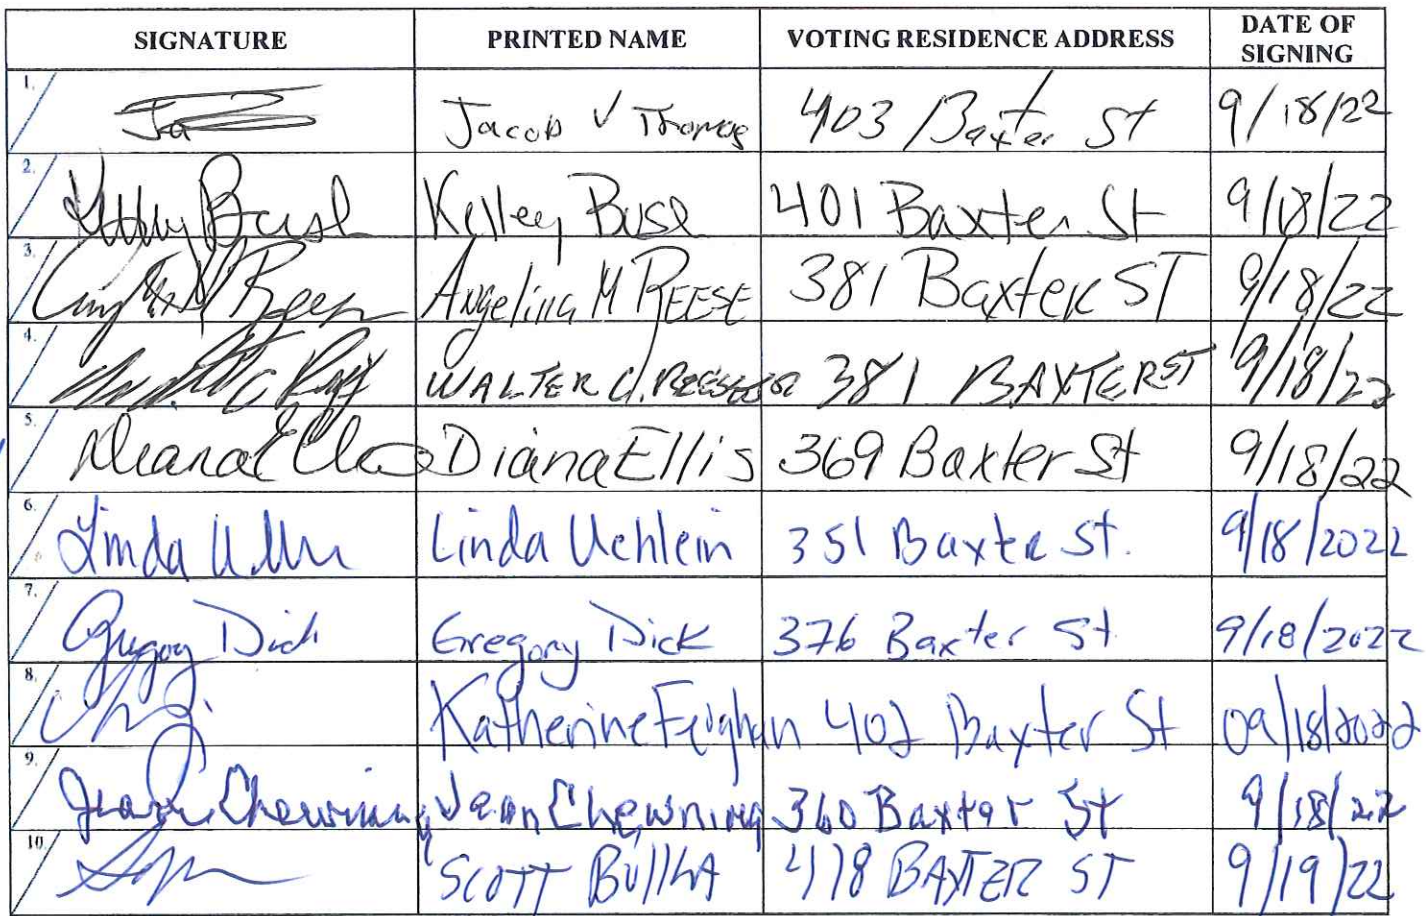 SIGNATURE PRINTED NAME VOTING RESIDENCE ADDRESS DATE OF SIGNING
1. Jacob V Thomas 403 Baxter St 9/18/22
2. Kelley Bush 401 Baxter St 9/18/22
3. Angelina M REESE 381 Baxter ST 9/18/22
4. WALTER 381 BAXTER ST 9/18/22
5. Diana Ellis Diana Ellis 369 Baxter St 9/18/22
6. Linda Linda Uehlein 351 Baxter St. 9/18/2022
7. Gregory Dick Gregory Dick 376 Baxter St 9/18/2022
8. Katherine 402 Baxter St 09/18/2022
9. Jean Chewning Jean Chewning 360 Baxter St 9/18/22
10. SCOTT 418 BAXTER ST 9/19/22